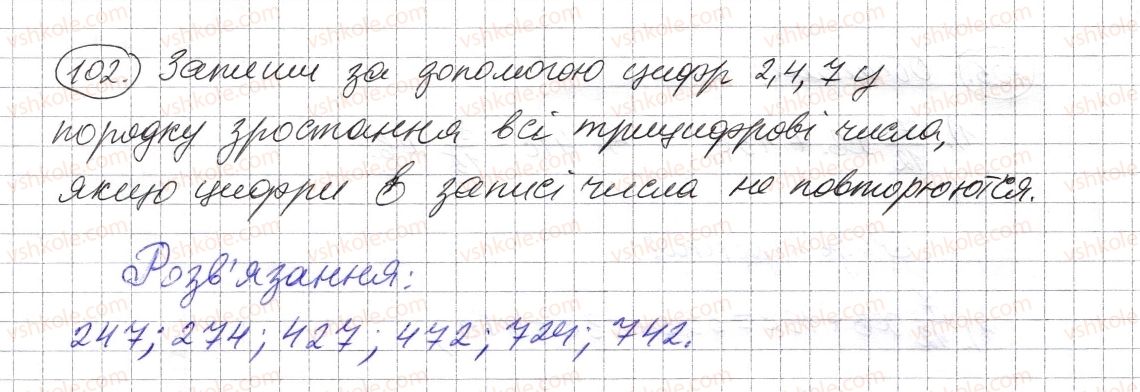 102. Запиши за допомогою цифр 2, 4, 7 у
порядку зростання всі трицифрові числа,
якщо цифри в записі числа не повторюються.
Розв'язання:
247; 274; 427; 472; 724; 742.